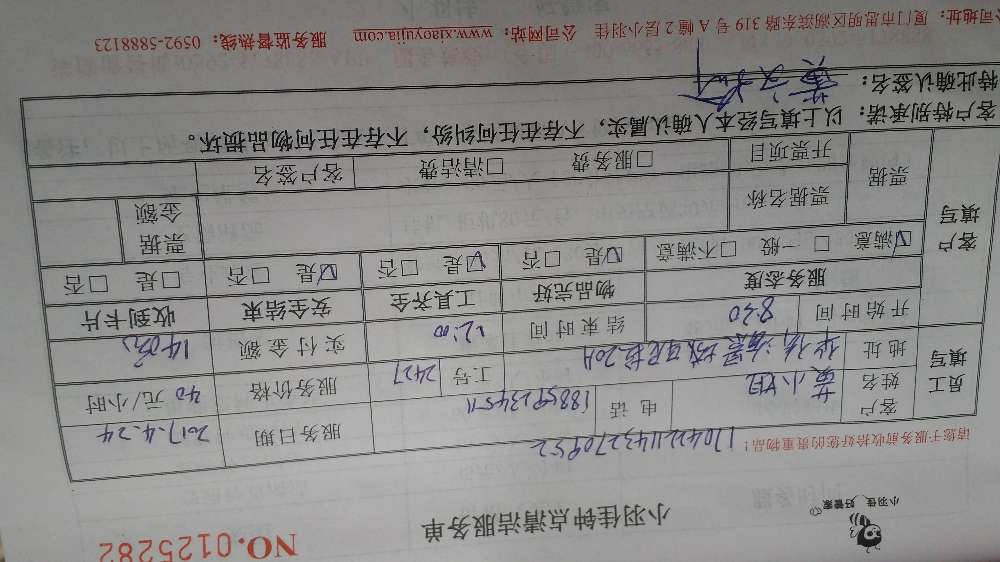 小羽佳 好管家
小羽佳钟点清洁服务单
NO.0125282
请您于服务前收拾好您的贵重物品！
1704221143270952
员工填写
客户姓名 黄小姐 电话 18859234511 服务日期 2017.4.24
地址 工号 2427 服务价格 40 元/小时
开始时间 8:30 结束时间 12:00 实付金额 140
客户填写
服务态度 物品完好 工具齐全 安全结束 收到卡片
☑满意 □一般 □不满意 ☑是 □否 ☑是 □否 ☑是 □否 □是 □否
票据 票据名称 票据金额
开票项目 □服务费 □清洁费 客户签名
客户特别承诺：以上填写经本人确认属实，不存在任何纠纷，不存在任何物品损坏。
特此确认签名：
公司地址：厦门市思明区湖滨东路 319 号 A 幢 2 层小羽佳 公司网站：www.xiaoyujia.com 服务监督热线：0592-5888123